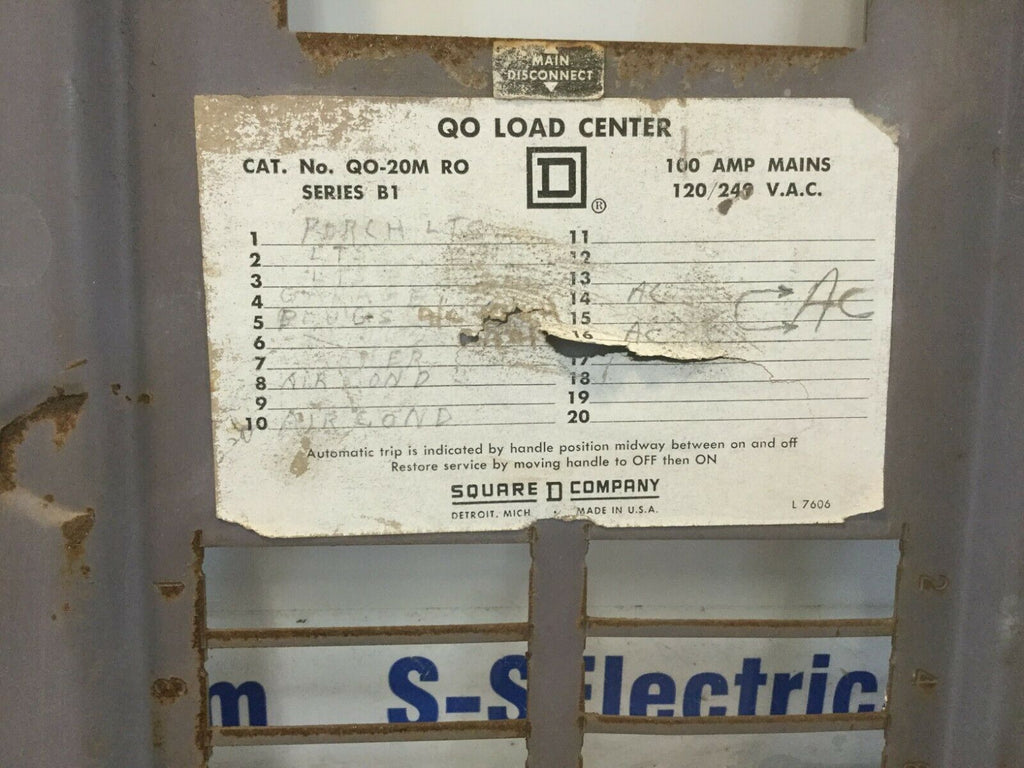 MAIN
DISCONNECT
QO LOAD CENTER
CAT. No. QO-20M RO
SERIES B1
D
®
100 AMP MAINS
120/240 V.A.C.
1 PORCH LTS
2 LT
3 LT
4
5 PLUGS A/C
6
7
8 AIR COND
9
10 AIR COND
11
12
13
14 AC
15
16 AC
17
18
19
20
AC
Automatic trip is indicated by handle position midway between on and off
Restore service by moving handle to OFF then ON
SQUARE D COMPANY
DETROIT, MICH. MADE IN U.S.A.
L 7606
1
2
m S-S Electric
3
4